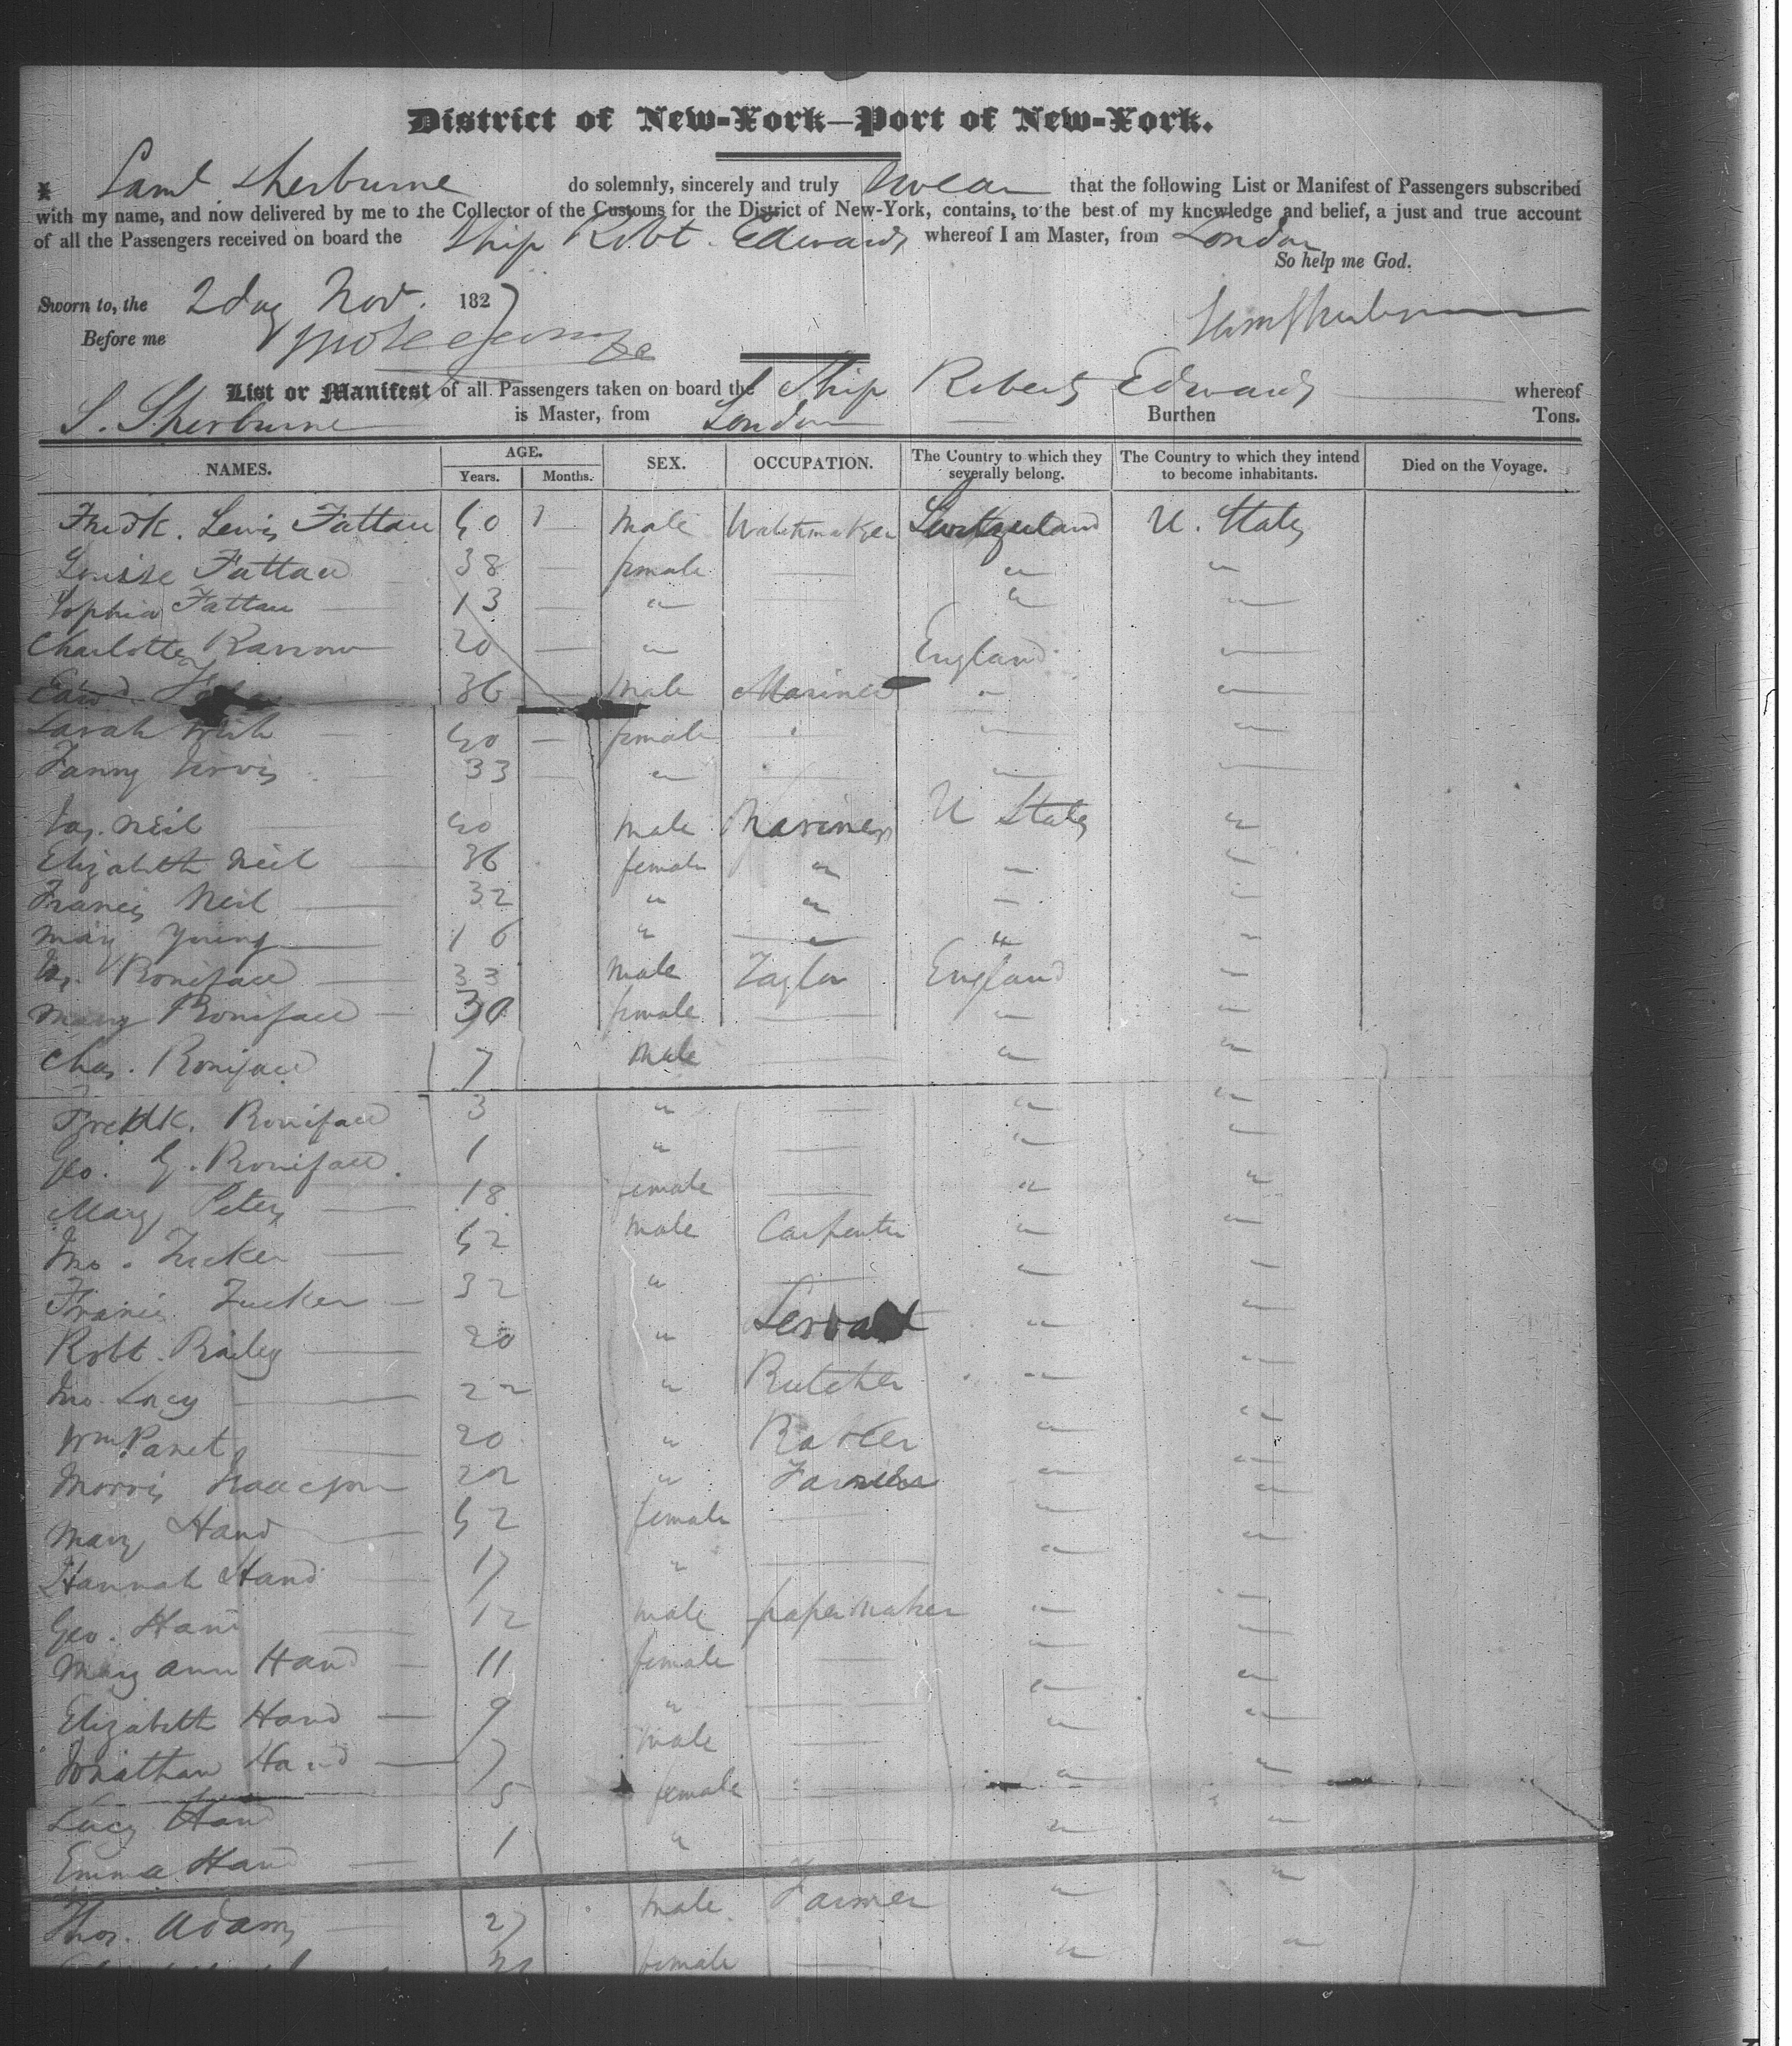 District of New-York—Port of New-York.
I Saml Sherburne do solemnly, sincerely and truly Swear that the following List or Manifest of Passengers subscribed
with my name, and now delivered by me to the Collector of the Customs for the District of New-York, contains, to the best of my knowledge and belief, a just and true account
of all the Passengers received on board the Ship Robt. Edwards whereof I am Master, from London
So help me God.
Sworn to, the 2 day Nov. 1827
Before me
Saml Sherburne
List or Manifest of all Passengers taken on board the Ship Roberts Edwards whereof
S. Sherburne is Master, from London Burthen Tons.
NAMES. AGE. SEX. OCCUPATION. The Country to which they severally belong. The Country to which they intend to become inhabitants. Died on the Voyage.
Years. Months.
Fredk. Lewis Fattau 40 male Watchmaker Switzerland U. States
Louise Fattau 38 — female — " "
Sophia Fattau 13 — " — " "
Charlotte Barrow 20 — " England "
Edwd. 36 — male Mariner " "
Sarah 40 — female " "
Fanny Jervis 33 " " "
Jas. Neil 40 male Mariner U States "
Elizabeth Neil 36 female " " "
Francis Neil 32 " " " "
May Young 16 " — " "
Boniface 33 male Taylor England "
Mary Boniface 30 female — " "
Chas. Boniface 7 male — " "
Fredk. Boniface 3 " — " "
Geo. G. Boniface. 1 " — " "
Mary Peters 18 female — " "
Jno. Tucker 52 male Carpenter " "
Francis Tucker 32 " — " "
Robt. Bailey 20 " Servant " "
Jno. Lacy 22 " Butcher " "
Wm. 20 " Baker " "
Morris Isaacson 22 " Farmer " "
Mary Hand 42 female — " "
Hannah Hand 17 " — " "
Geo. Hand 12 male papermaker " "
Mary Ann Hand 11 female — " "
Elizabeth Hand 9 " — " "
Jonathan Hand 7 male — " "
Lucy Hand 5 female — " "
Emma Hand 1 " — " "
Thos. Adams 27 male Farmer " "
female — " "